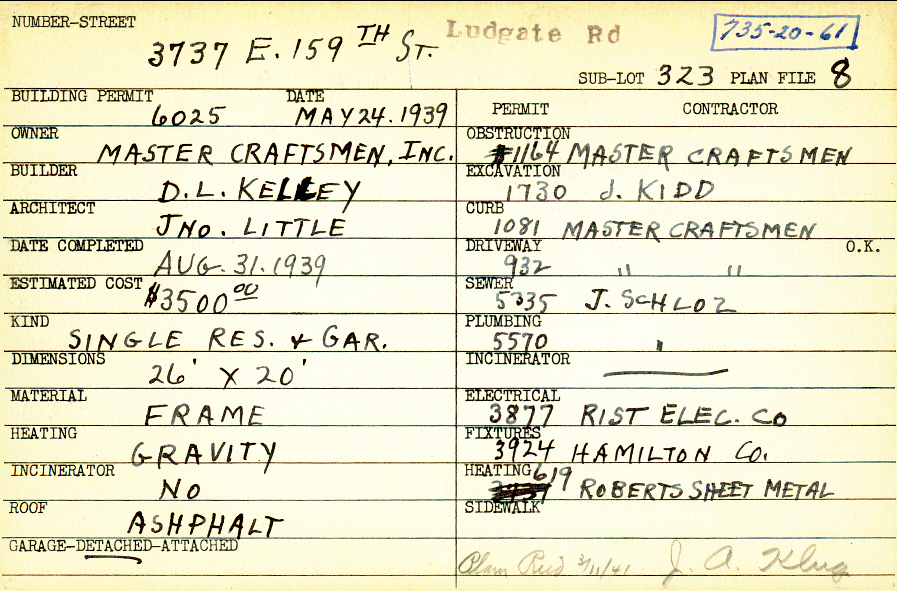 NUMBER-STREET
3737 E. 159TH ST. Ludgate Rd 735-20-61
SUB-LOT 323 PLAN FILE 8
BUILDING PERMIT DATE
6025 MAY 24. 1939
OWNER
MASTER CRAFTSMEN, INC.
BUILDER
D.L. KELLEY
ARCHITECT
JNO. LITTLE
DATE COMPLETED
AUG. 31. 1939
ESTIMATED COST
$3500 00
KIND
SINGLE RES. & GAR.
DIMENSIONS
26' X 20'
MATERIAL
FRAME
HEATING
GRAVITY
INCINERATOR
NO
ROOF
ASHPHALT
GARAGE-DETACHED-ATTACHED
PERMIT CONTRACTOR
OBSTRUCTION
#1164 MASTER CRAFTSMEN
EXCAVATION
1730 J. KIDD
CURB
1081 MASTER CRAFTSMEN
DRIVEWAY O.K.
932 " "
SEWER
5335 J. SCHLOZ
PLUMBING
5570 "
INCINERATOR
ELECTRICAL
3877 RIST ELEC. CO
FIXTURES
3924 HAMILTON CO.
HEATING
619 ROBERTS SHEET METAL
SIDEWALK
3/11/41 J. A. Klug